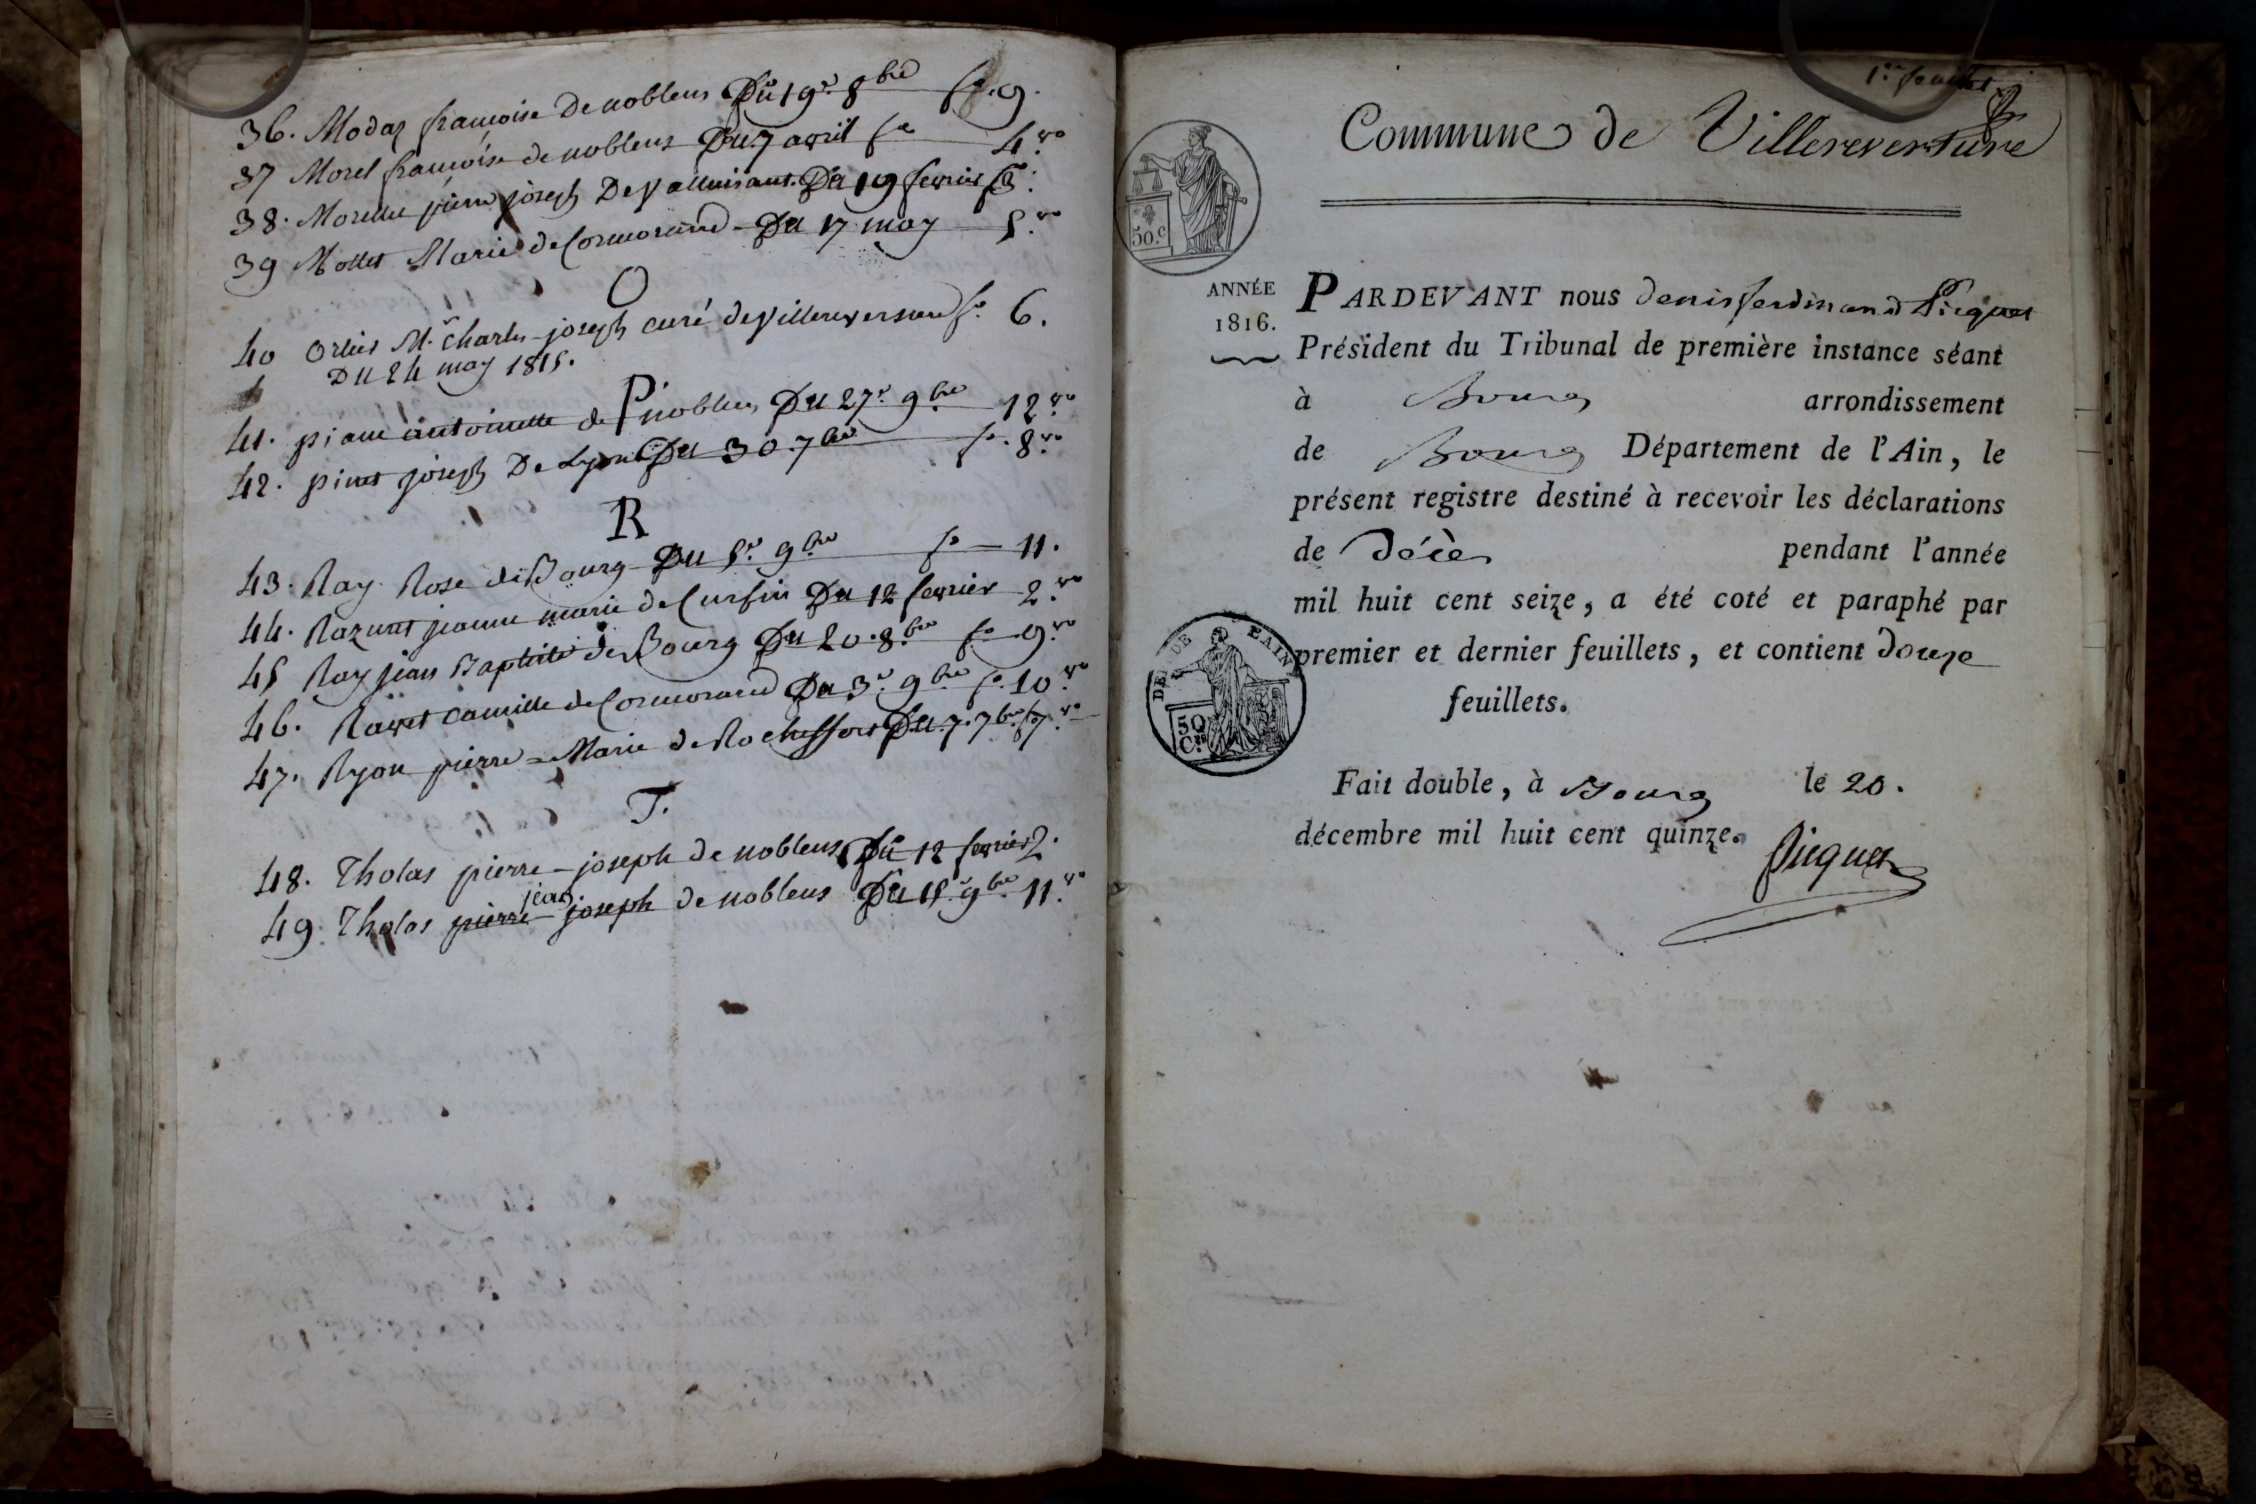 36. Modas francoise de nobleus Du 19.e 8.bre f.o 9.
37 Morel francoise de nobleus Du 7 avril f.o 4.vo
38. Morellet pierre joseph De Valluisant Du 19 fevrier f.o 3.
39 Mollet Marie de Cormorand Du 17 may 5.vo
O
40 Orlies M.r Charles joseph curé de villereversure f.o 6.
Du 24 may 1815.
P
41. piane antoinette de nobleus Du 27.e 9.bre 12.vo
42. pinet joseph De Lyon Du 30. 7.bre f.o 8.vo
R
43. Ray Rose de Bourg Du 5.e 9.bre f.o 11.
44. Razuret jeanne marie de Curfin Du 12 fevrier 2.vo
45 Ray jean Baptiste de Bourg Du 20. 8.bre f.o 9.vo
46. Ravet camille de Cormorand Du 3.e 9.bre f.o 10.vo
47. Ryon pierre = Marie de Rocheffort Du 7. 7.bre f.o 7.vo
T.
48. Tholas pierre - joseph de nobleus Du 12 fevrier 2.
jean
49. Tholas pierre - joseph de nobleus Du 15.e 9.bre 11.vo
1.er feuillet
Commune de Villereversure
50.c
ANNÉE
1816.
PARDEVANT nous denis ferdinand Picquet
Président du Tribunal de première instance séant
à Bourg arrondissement
de Bourg Département de l'Ain, le
présent registre destiné à recevoir les déclarations
de décès pendant l'année
mil huit cent seize, a été coté et paraphé par
premier et dernier feuillets, et contient douze
feuillets.
DEP. DE L'AIN
50 C.es
Fait double, à Bourg le 20.
décembre mil huit cent quinze.
Picquet